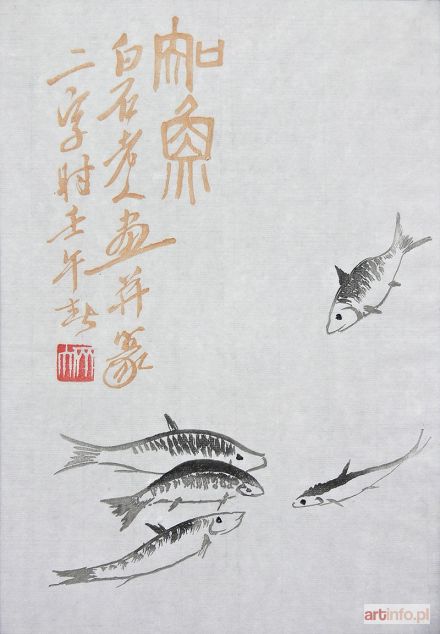 知魚
白石老人畫并篆
二字時壬午春
artinfo.pl